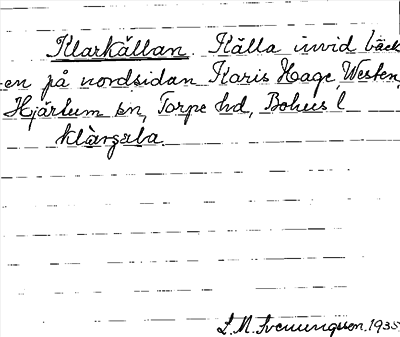 Klarkällan. Källa invid bäck
en på nordsidan Karis Hage, Westen,
Hjärtum sn, Torpe hd, Bohus l
klàrsəla.
L.M. Svenungsson. 1935.